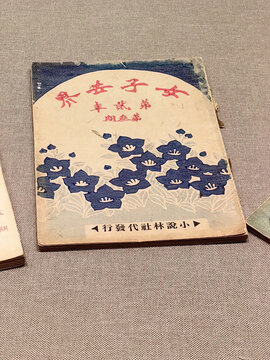 女子世界
第貳年
第叁期
小說林社代發行